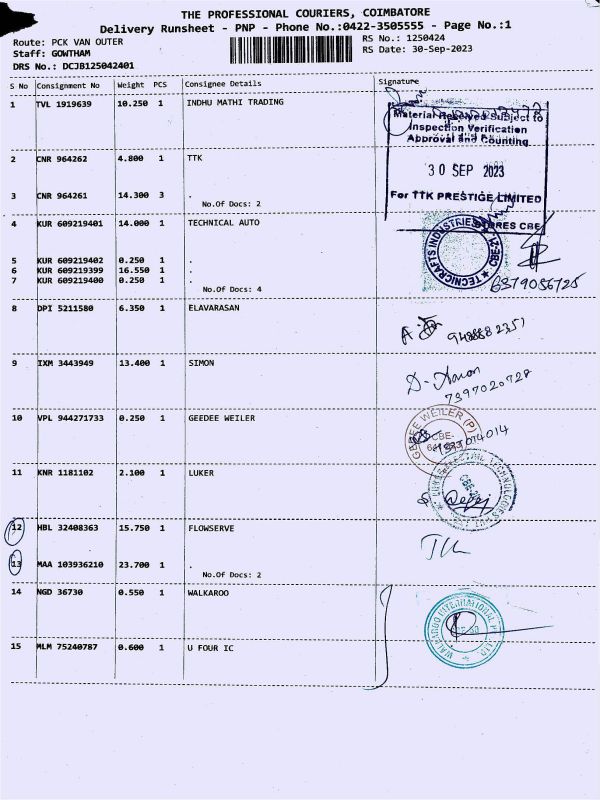 THE PROFESSIONAL COURIERS, COIMBATORE
Delivery Runsheet - PNP - Phone No.:0422-3505555 - Page No.:1
Route: PCK VAN OUTER
RS No.: 1250424
Staff: GOWTHAM
RS Date: 30-Sep-2023
DRS No.: DCJB125042401
S No Consignment No Weight PCS Consignee Details Signature
1 TVL 1919639 10.250 1 INDHU MATHI TRADING
Material Received Subject to
Inspection Verification
Approval and Counting
2 CNR 964262 4.800 1 TTK
30 SEP 2023
3 CNR 964261 14.300 3 .
For TTK PRESTIGE LIMITED
No.Of Docs: 2
4 KUR 609219401 14.000 1 TECHNICAL AUTO
STORES CBE
TECNICRAFTS INDUSTRIES CBE-21
5 KUR 609219402 0.250 1 .
6 KUR 609219399 16.550 1 .
7 KUR 609219400 0.250 1 .
6379056725
No.Of Docs: 4
8 DPI 5211580 6.350 1 ELAVARASAN
9 IXM 3443949 13.400 1 SIMON
7397020728
10 VPL 944271733 0.250 1 GEEDEE WEILER
GEDEE WEILER (P)
CBE-
11 KNR 1181102 2.100 1 LUKER
12 HBL 32408363 15.750 1 FLOWSERVE
13 MAA 103936210 23.700 1 .
No.Of Docs: 2
14 NGD 36730 0.550 1 WALKAROO
WALKAROO INTERNATIONAL
15 MLM 75240787 0.600 1 U FOUR IC